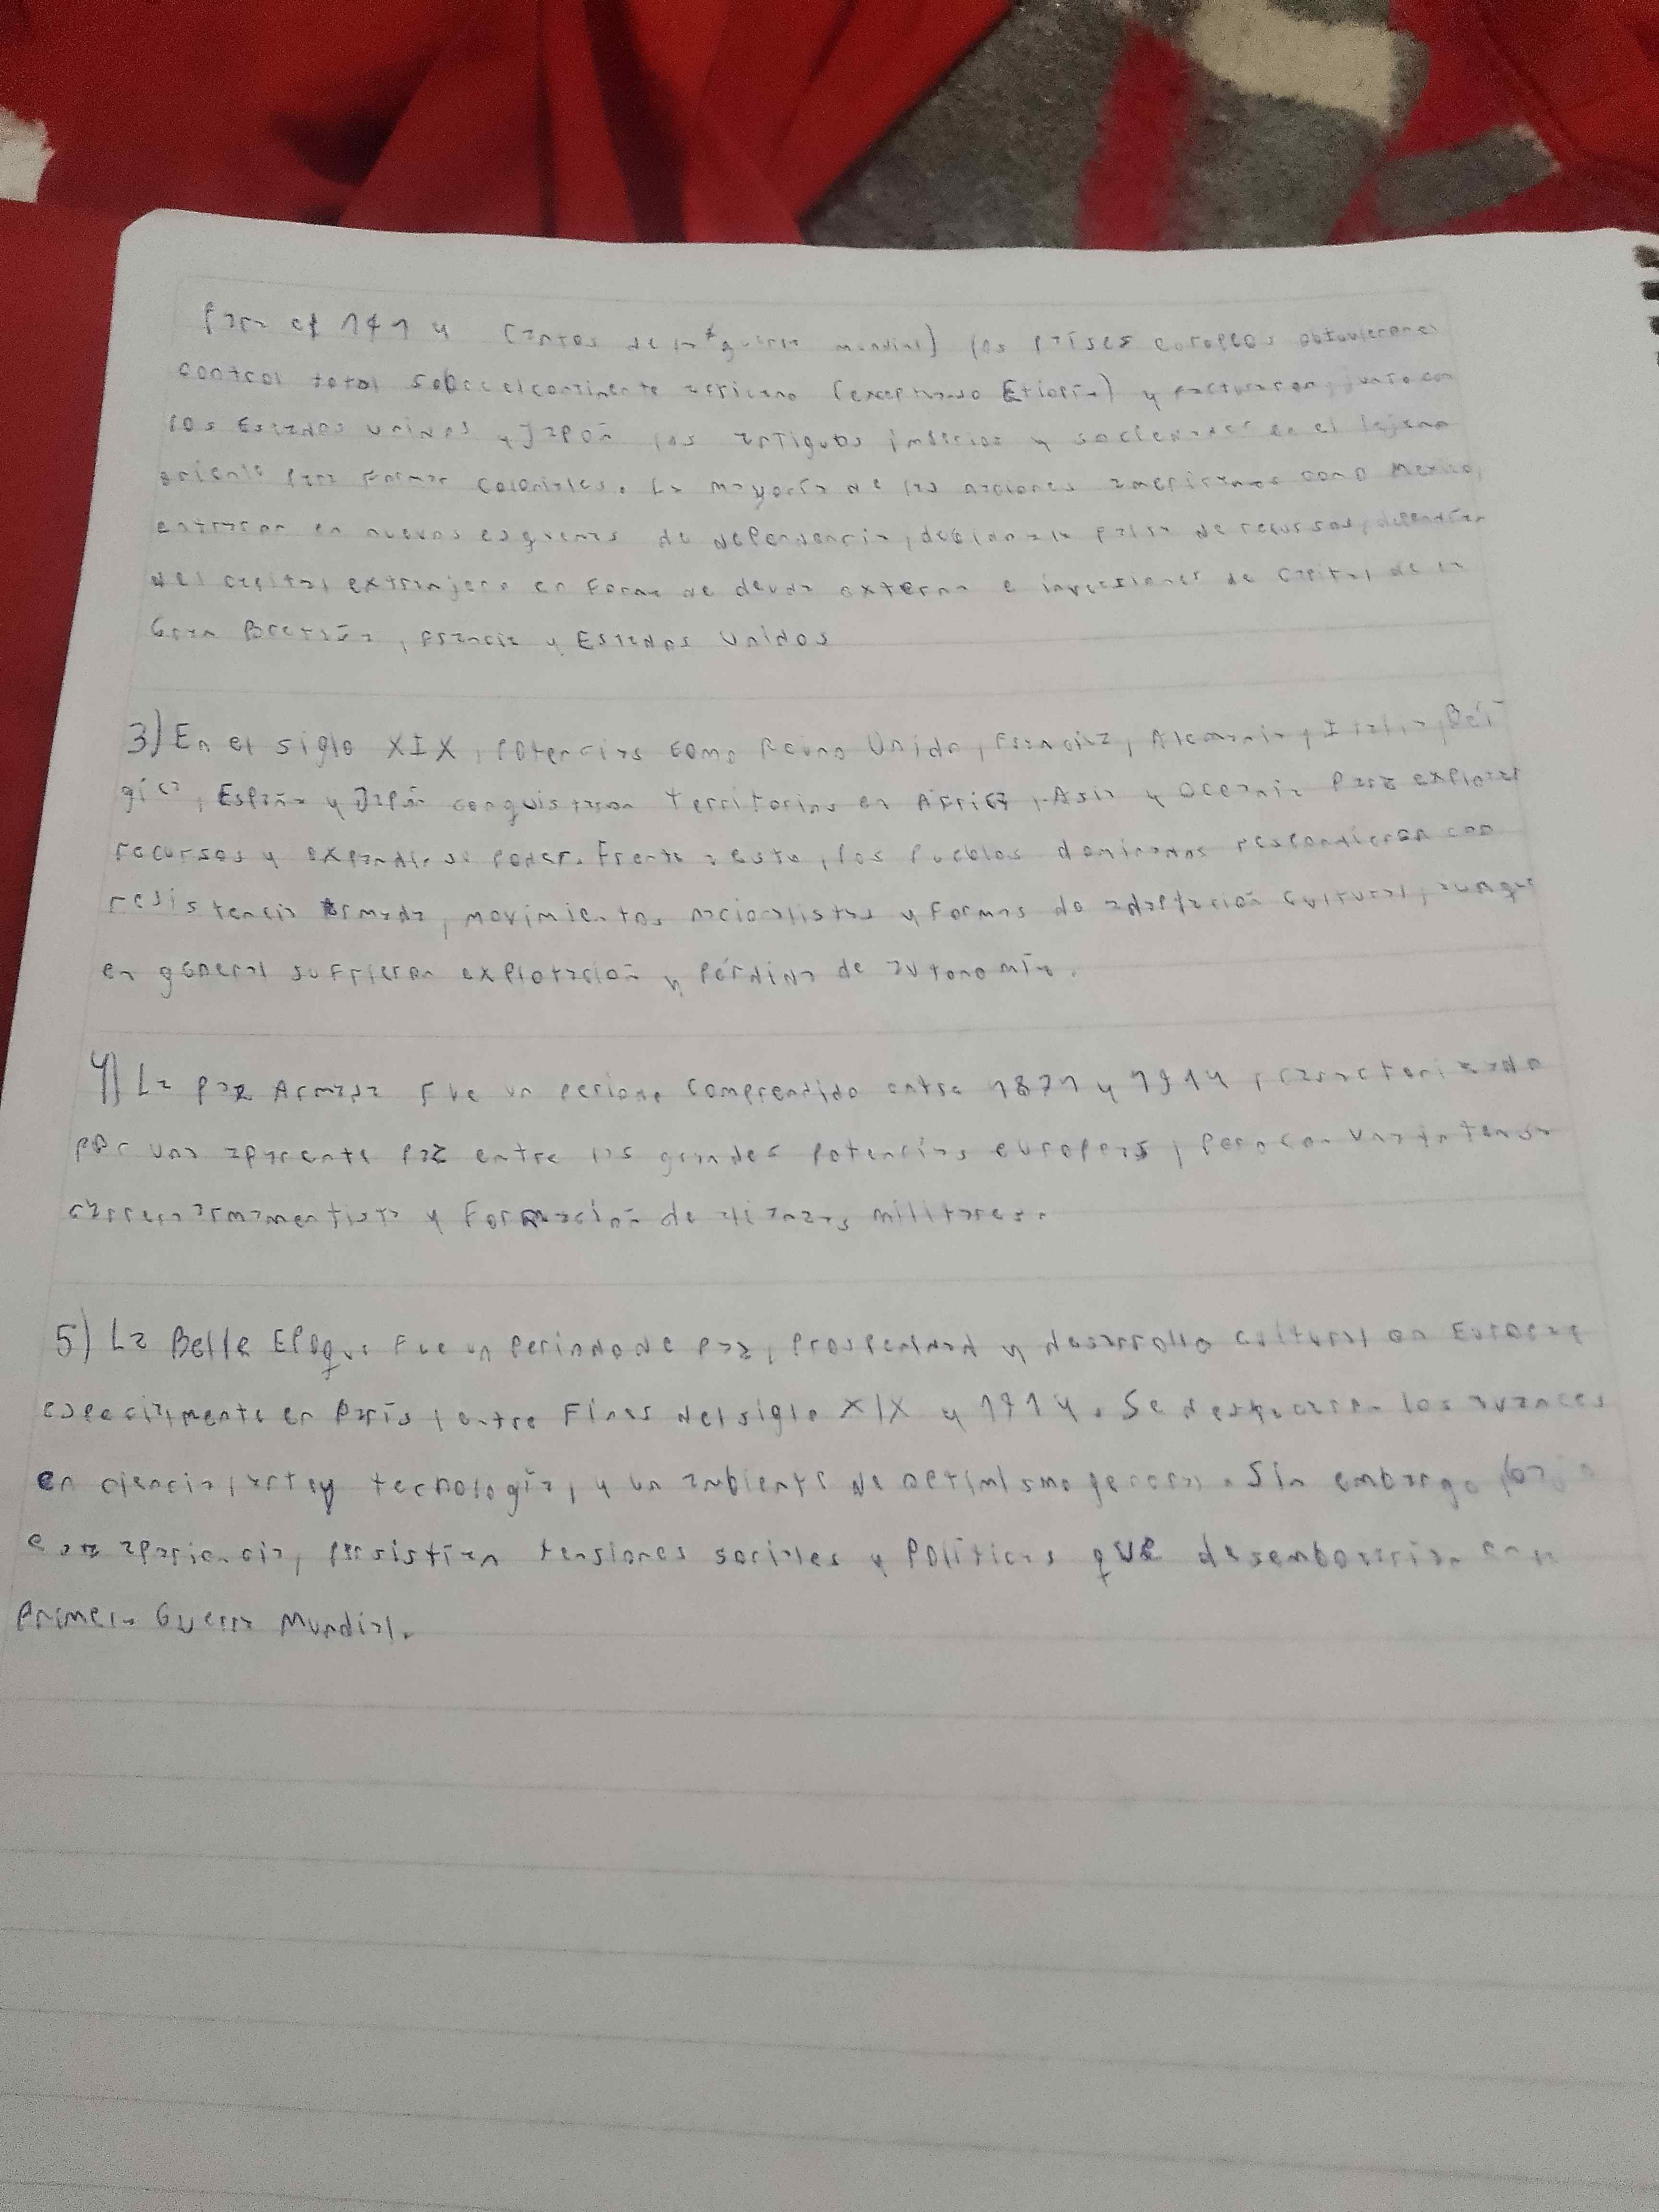 Para el 1914 (antes de la 1ª guerra mundial) los países europeos obtuvieron el
control total sobre el continente africano (exceptuando Etiopía) y facturaron, junto con
los Estados Unidos y Japón las antiguos imperios y sociedades en el lejano
oriente para formar coloniales. La mayoría de las naciones americanas como Mexico,
entraron en nuevos esquemas de dependencia, debido a la falta de recursos, dependían
del capital extranjero en forma de deuda externa e inversiones de capital de la
Gran Bretaña, Francia y Estados Unidos
3) En el siglo XIX, potencias como Reino Unido, Francia, Alemania, Italia, Bél
gica, España y Japón conquistaron territorios en África, Asia y Oceanía para explotar
recursos y expandir su poder. Frente a esto, los pueblos dominados respondieron con
resistencia armada, movimientos nacionalistas y formas de adaptación cultural, aunque
en general sufrieron explotación y pérdida de autonomía.
4) La paz Armada fue un periodo comprendido entre 1871 y 1914, caracterizado
por una aparente paz entre las grandes potencias europeas, pero con una intensa
carrera armamentista y formación de alianzas militares.
5) La Belle Epoque fue un periodo de paz, prosperidad y desarrollo cultural en Europa,
especialmente en París, entre fines del siglo XIX y 1914. Se destacaron los avances
en ciencia, arte y tecnología, y un ambiente de optimismo general. Sin embargo, bajo
esta apariencia, persistían tensiones sociales y políticas que desembocarían en la
Primera Guerra Mundial.